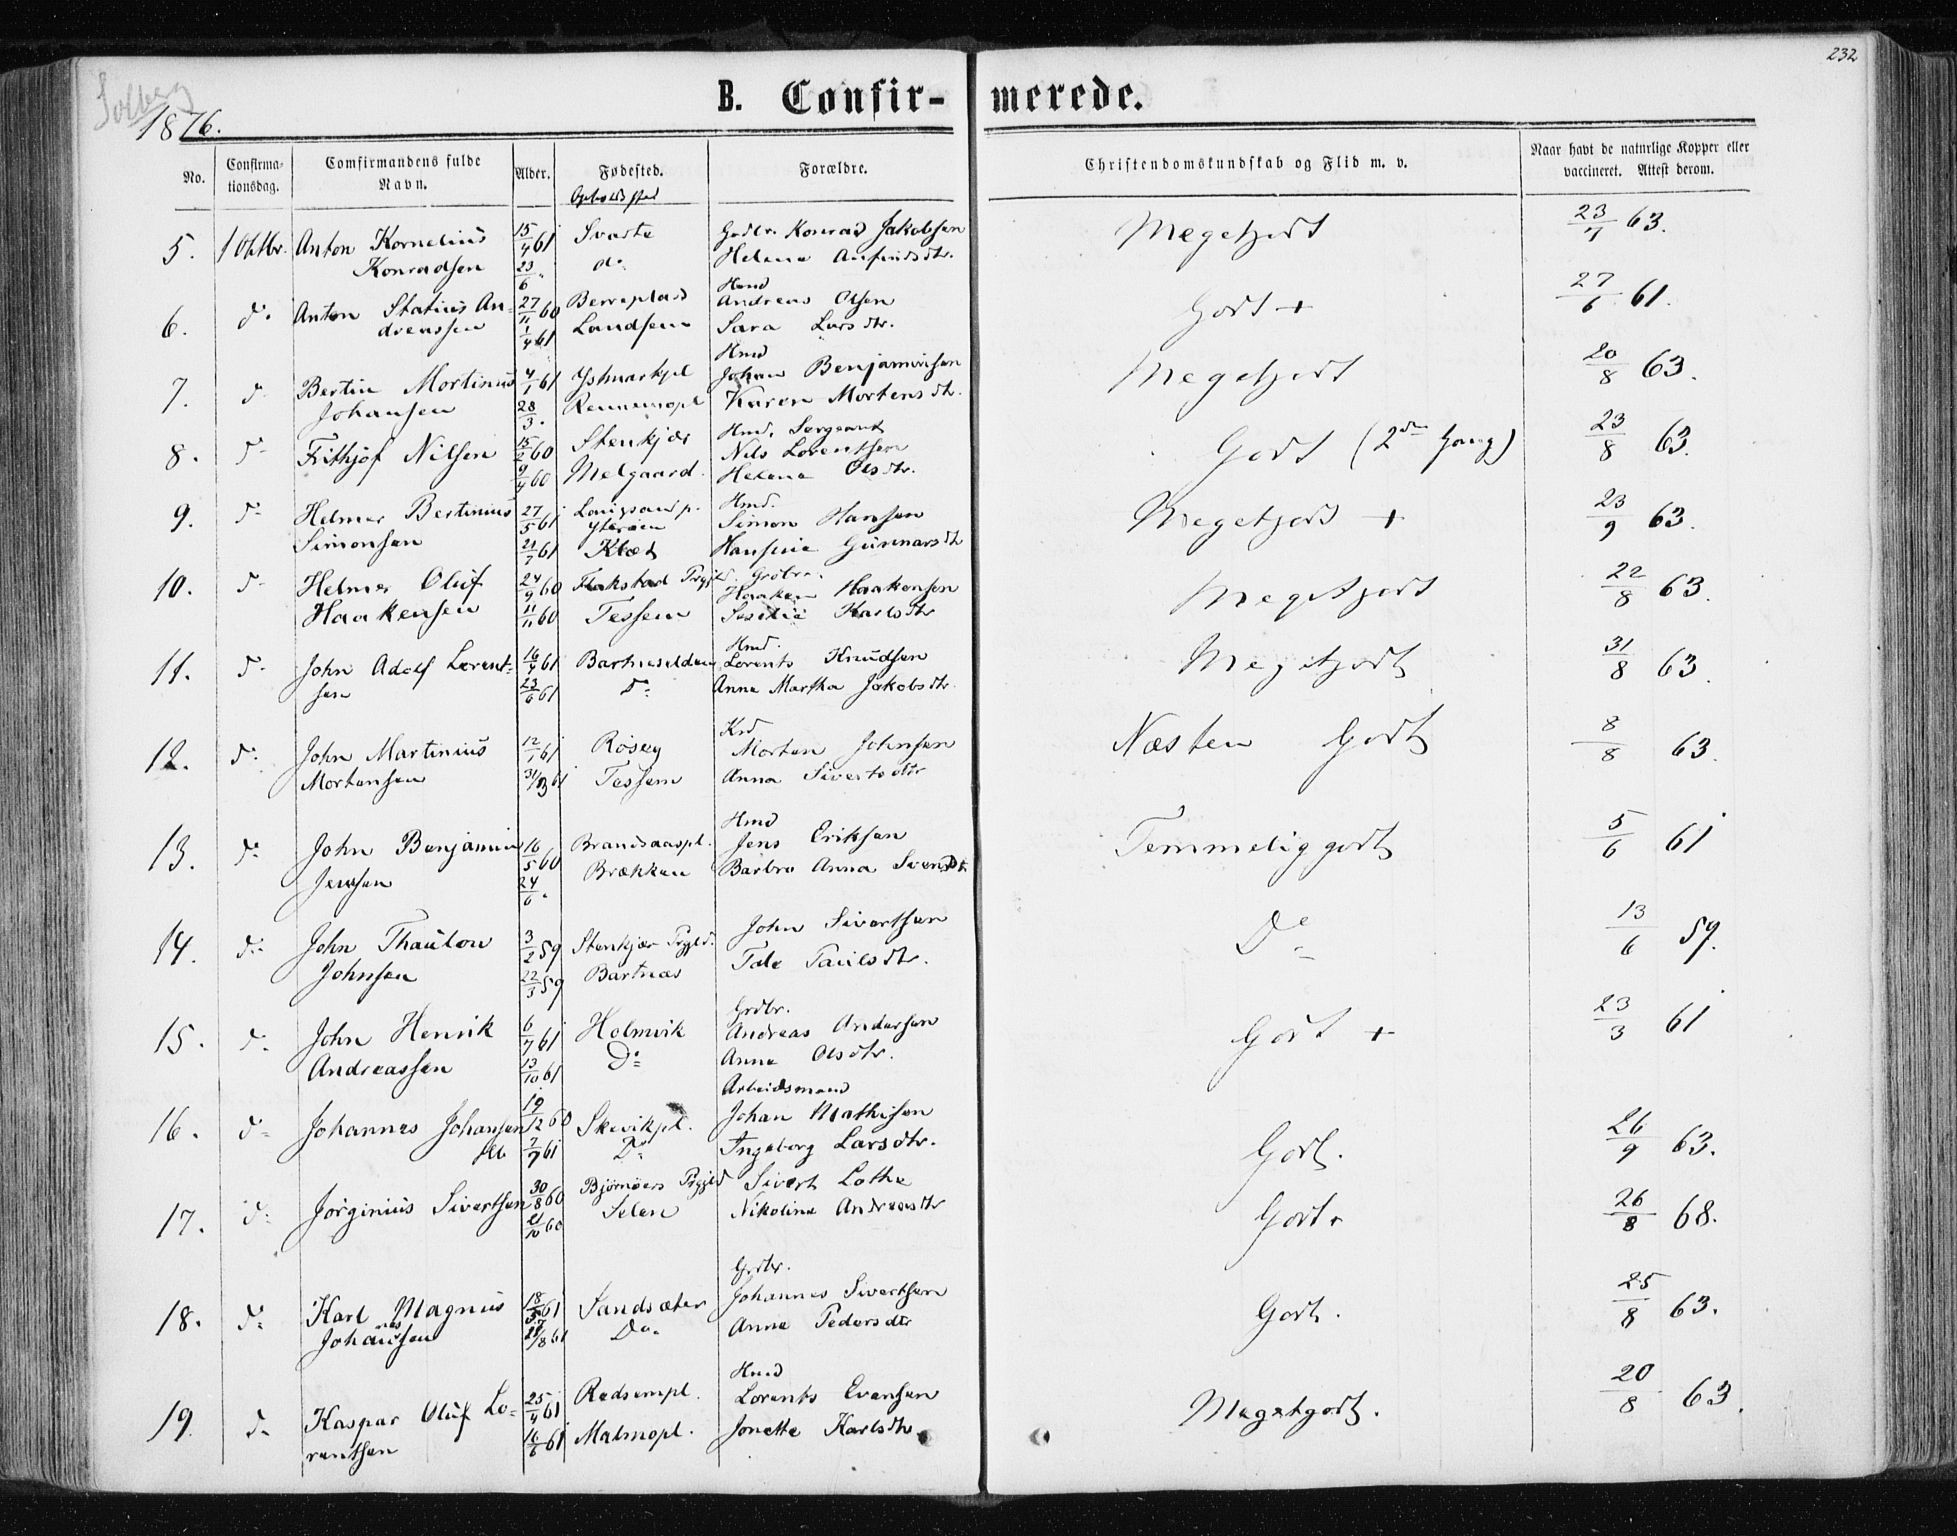 232
Solberg
1876.
B. Confir- merede.
No.
Confirma-
tionsdag.
Comfirmandens fulde
Navn.
Alder.
Fødested.
Opholdssted
Forældre.
Christendomskundskab og Flid m. v.
Naar havt de naturlige Kopper eller
vaccineret. Attest derom.
5. 1 Oktbr. Anton Kornelius 15/4 61 Svarte Grdbr. Konrad Jakobsen Megetgodt 23/7 63.
Konradsen 23/6 " do Helena Anfindsdtr.
Hmd
6. do Anton Statius An- 27/11 60 Berreplads Andreas Olsen Godt + 27/6 61.
dreassen 1/4 61 Landsem Sara Larsdtr.
Hmd
7. do Bertin Mortinus 4/1 61 Ystmarkpl Johan Benjaminsen Megetgodt 20/8 63.
Johansen 28/3 " Rennemopl Karen Mortensdtr.
Hmd, Sergeant
8. do Frithjof Nilsen 15/2 60 Stenkjær Nils Lorentsen Godt (2den Gang) 23/8 63.
9/4 60 Melgaard. Helena Olsdtr.
Hmd.
9. do Helmer Bertinius 27/5 61 Simon Hansen Megetgodt + 23/9 63.
Ytterøen
Simonsen 21/7 61 Klæt Gunnarsdtr
10. do Helmer Oluf 24/9 60 Flakstad Prgjld. Grdbr. Haaken Haakensen Megetgodt 22/8 63.
Haakensen 11/11 60 Tessem Karlsdtr
Hmd.
11. do John Adolf Lorent- 16/4 61 Lorents Knudsen Megetgodt 31/8 63.
sen 23/6 61 do Anna Martha Jakobsdtr.
Krd
12. do John Martinius 12/1 61 Røseg Morten Johnsen Næsten Godt 8/8 63.
Mortensen 31/3 61 Tessem Anna Sivertsdtr
Hmd
13. do John Benjamin 16/5 60 Brandsaaspl. Jens Eriksen Temmelig godt 5/6 61
Jensen 24/6 " Brækken Barbro Anna Svendsdtr
14. do John Thaulow 3/2 59 Stenkjær Prgjld. John Sivertsen Do 13/6 59.
Johnsen 22/3 59 Bartnæs Tale Paulsdtr.
Grdbr.
15. do John Henrik 6/7 61 Holmvik Andreas Andersen Godt + 23/3 61
Andreassen 13/10 61 Do Anna Olsdtr.
Arbeidsmand
16. do Johannes Johansen 19/12 60 Skevikpl. Johan Mathisen Godt. 26/9 63.
7/7 61 Do Ingeborg Larsdtr.
17. do Jørginius Sivertsen 30/8 60 Bjørnøers Prgjld Sivert Lothe Godt. 26/8 68.
21/10 60 Selen Nikoline Andreasdtr
Grdbr.
18. do Karl Magnus 18/5 61 Sandsæter Johannes Sivertsen Godt. 25/8 63.
Johannessen /8 61 Do Anna Pedersdtr
Hmd
19. do Kaspar Oluf Lo- 25/4 61 Redsempl. Lorents Evensen Megetgodt. 20/8 63.
rentsen 16/6 61 Malmopl. Jonetta Karlsdtr.